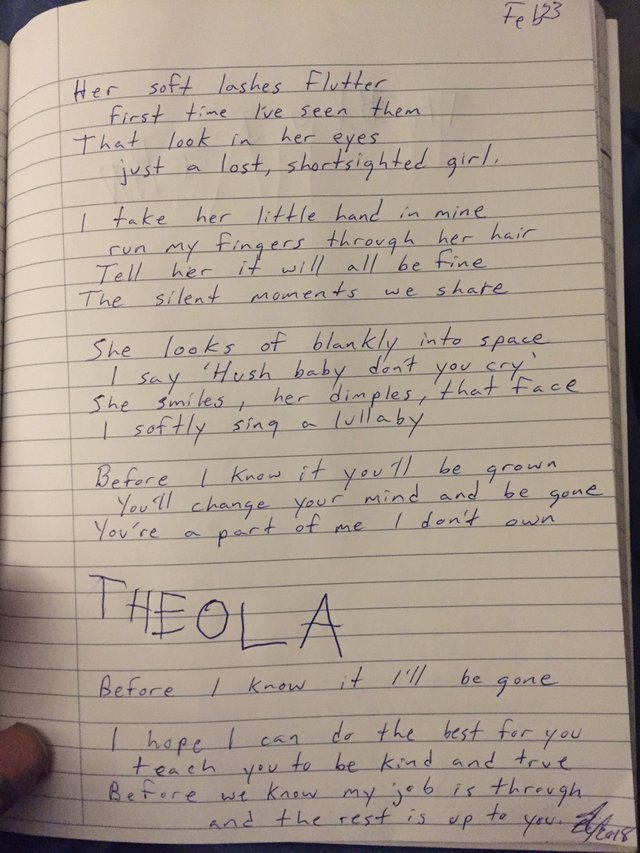 Feb 23
Her soft lashes flutter
first time I've seen them
That look in her eyes
just a lost, shortsighted girl.
I take her little hand in mine
run my fingers through her hair
Tell her it will all be fine
The silent moments we share
She looks of blankly into space
I say 'Hush baby don't you cry'
She smiles, her dimples, that face
I softly sing a lullaby
Before I know it you'll be grown
You'll change your mind and be gone
You're a part of me I don't own
THEOLA
Before I know it I'll be gone
I hope I can do the best for you
teach you to be kind and true
Before we know my job is through
and the rest is up to you.